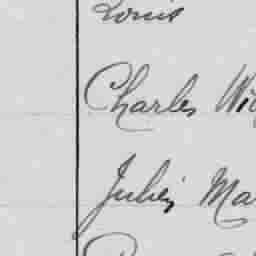 Louis
Charles Wil
Julien Ma